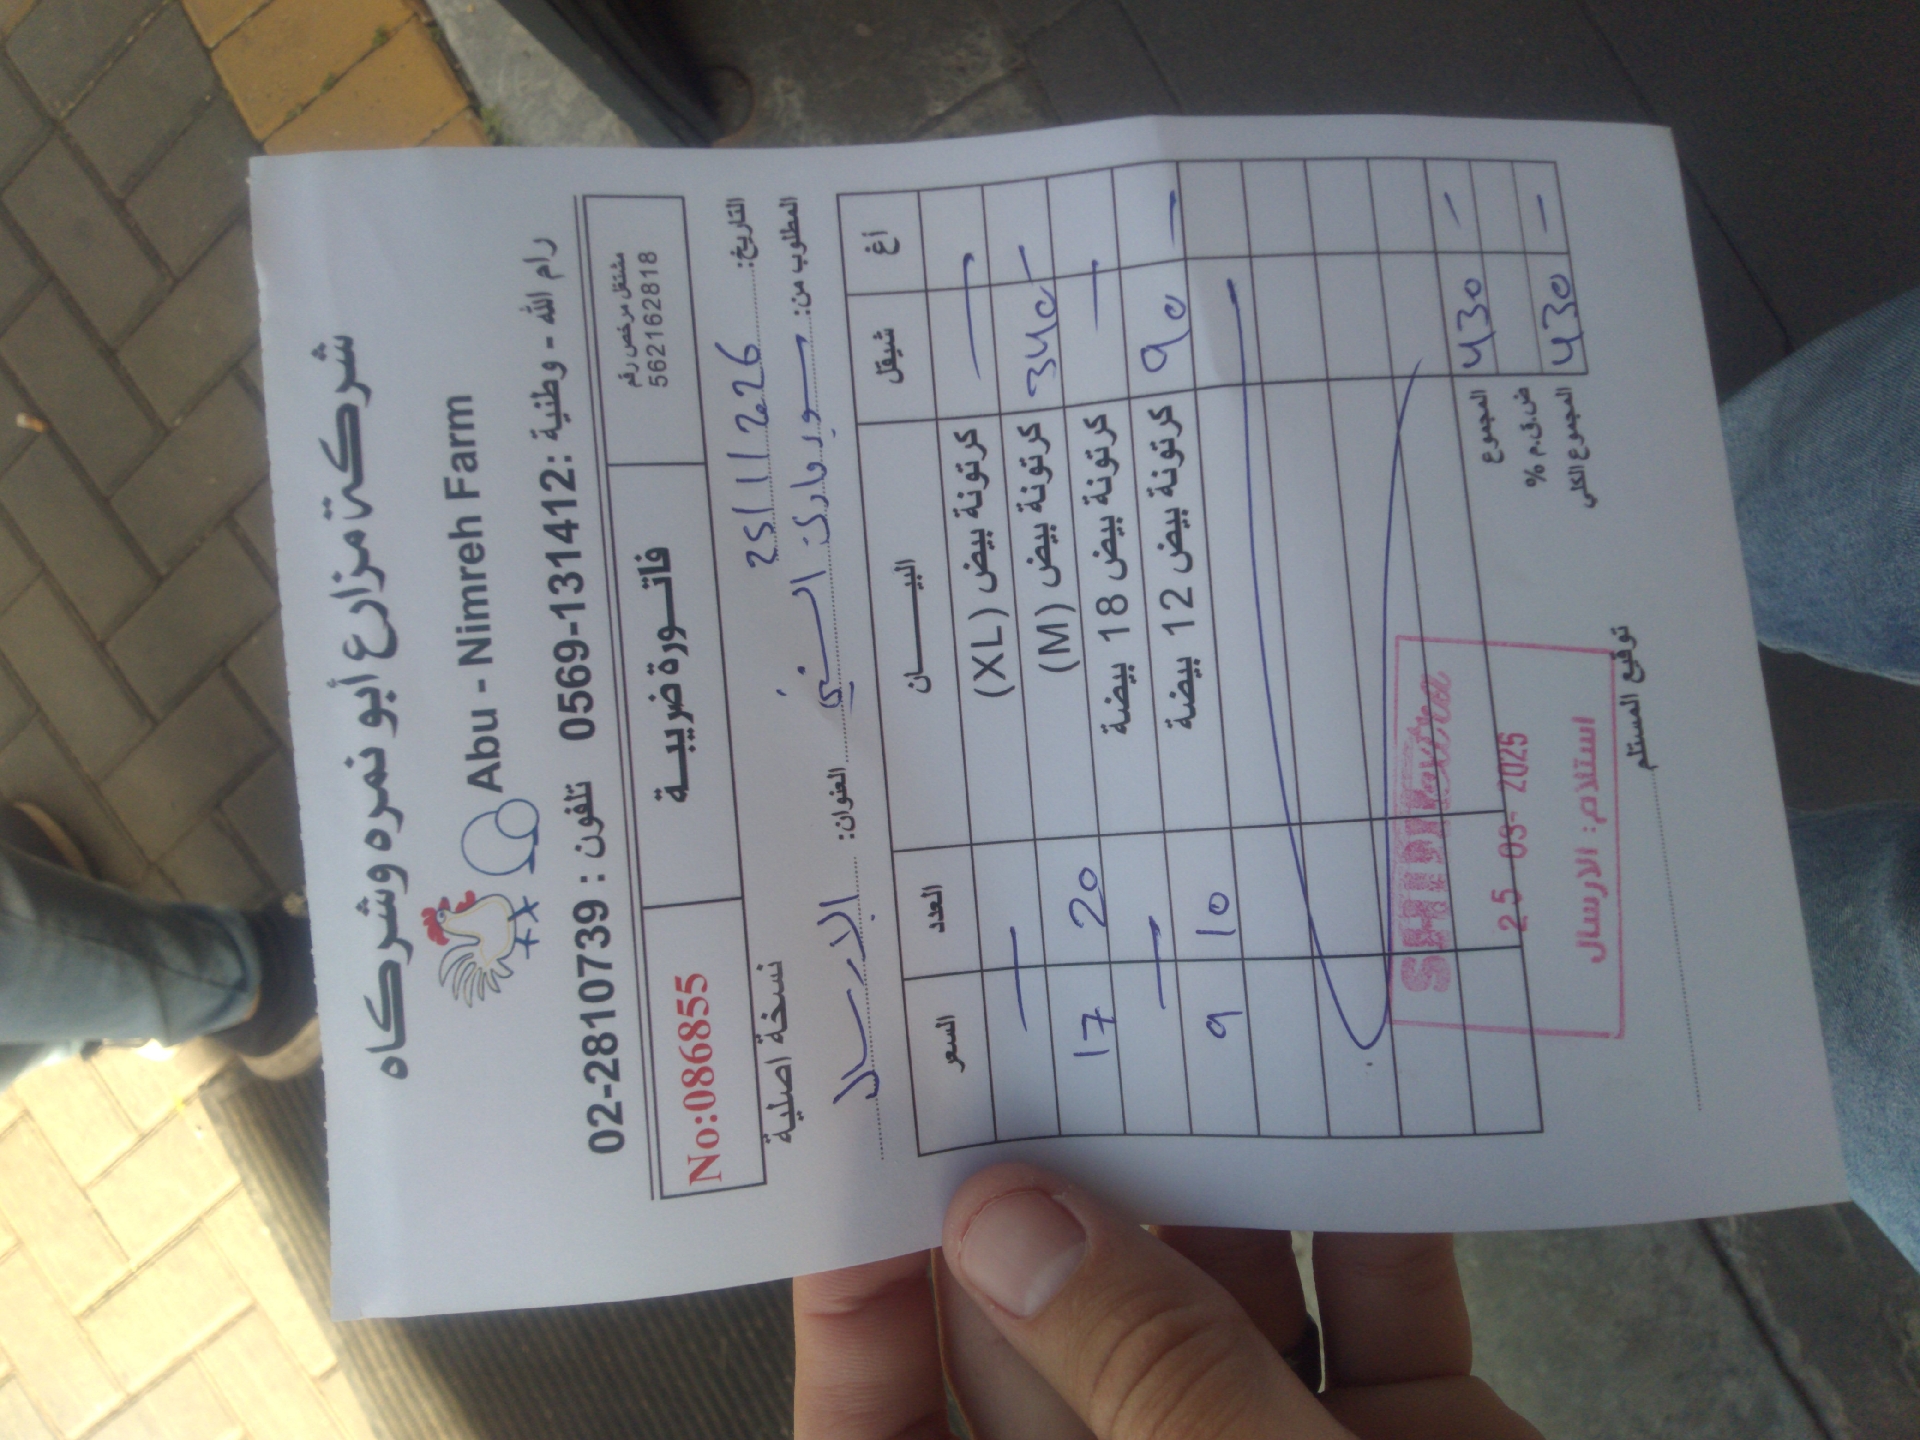 شركة مزارع أبو نمره وشركاه
Abu - Nimreh Farm
رام الله - وطنية: 0569-131412 تلفون : 02-2810739
مشتغل مرخص رقم
562162818
فاتـــورة ضريبـــة
No:086855
نسخة اصلية
التاريخ: 25/1/2026
المطلوب من: سوبر ماركت السني العنوان: الارسال
شيقل أغ البيــــان العدد السعر
— كرتونة بيض (XL) —
340 - كرتونة بيض (M) 20 17
— كرتونة بيض 18 بيضة —
90 — كرتونة بيض 12 بيضة 10 9
المجموع 430 —
ض.ق.م %
المجموع الكلي 430 —
25 - 03 - 2025
استلام: الارسال
توقيع المستلم